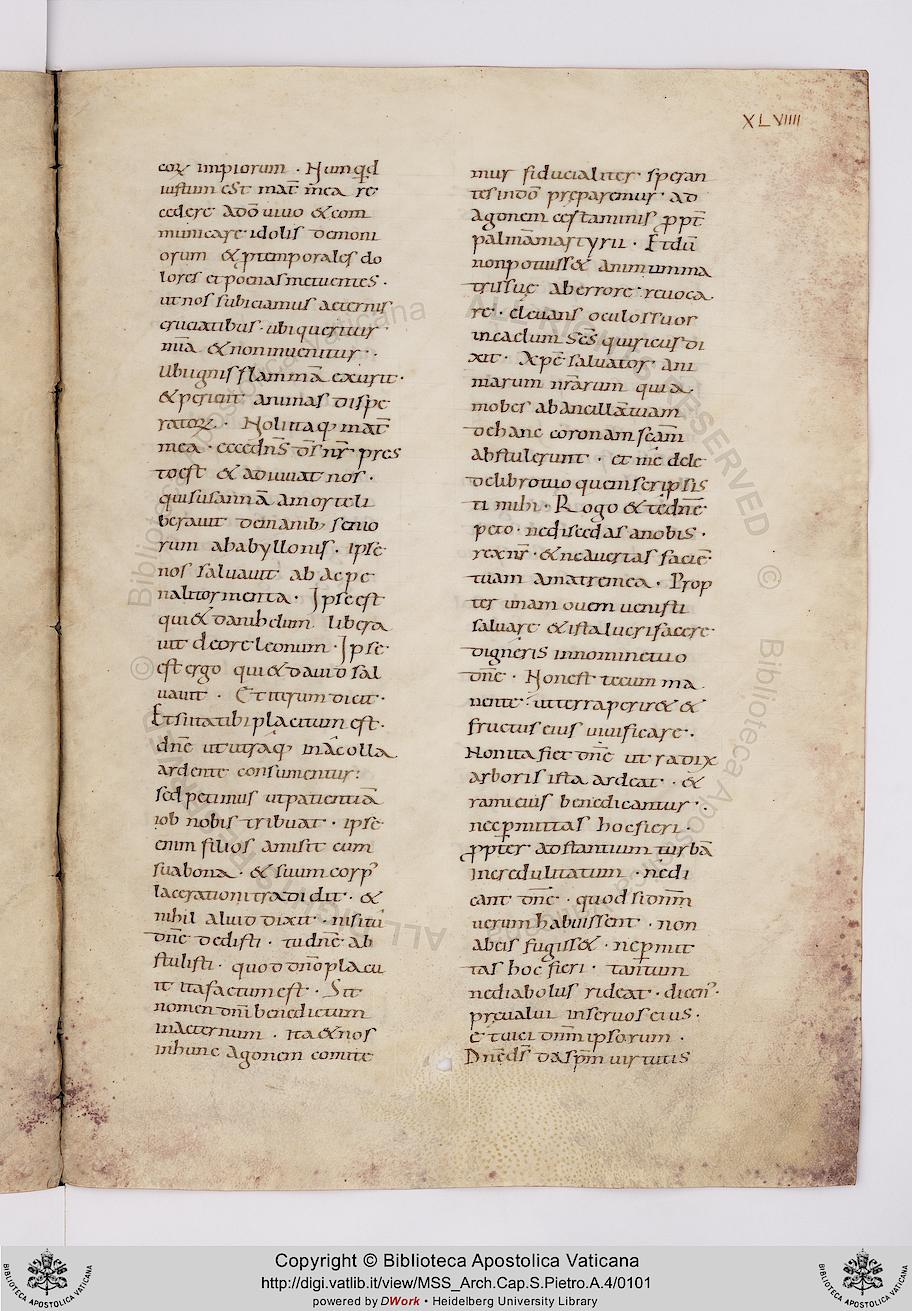 XLVIIII
corꝝ impiorum · Numqđ
iustum est mat̄ mea re
cedere a dō uiuo & com
municare idolis demoni
orum & p̱ temporales do
lores et poenas metuentes ·
ut nos subiciamus aeternis
cruciatibus · ubi queritur
mīa & non inuenitur ·
Ubi ignis flammā exurit ·
& periunt animas dispe
ratoꝝ · Nolitaq; mat̄
mea · ecce dn̄s dī nr̄ pres
to est & adiuuat nos ·
qui susannā a morte li
berauit de manib; senio
rum a babyllonis · ipse
nos saluauit ab ac pe
nali tormenta · Ipse est
qui & danihelum libera
uit de ore leonum · Ipse
est ergo qui & dauid sal
uauit · Et iterum dicit ·
Et si ita tibi placitum est ·
dn̄e ut utraq; in ac olla
ardente consumentur :
sed petimus ut patientiā
iob nobis tribuat · ipse
enim filios amisit cum
sua bona · & suum corp᾽
lacerationi tradidit · &
nihil aliud dixit · nisi tū
dn̄e dedisti · tu dn̄e ab
stulisti · quod dn̄o placu
it ita factum est · Sit
nomen dn̄i benedictum
in aeternum · ita & nos
in hunc agonem comite
mur fiducialiter · speran
tes in dō preparemur · ad
agonem certaminis ꝓpt̄
palmā martyrii · Et dū
non potuiss& animum ma
tris suę ab errore reuoca
re · eleuans oculos suos
in caelum scs̄ quiricus di
xit · Xpē saluator · ani
marum nr̄arum qui a
nobis ab ancillā tuam
de hanc coronam scām
abstulerunt · et me dele
de libro tuo quem scripsis
ti mihi · Rogo & te dn̄e
peto · ne discedas a nobis ·
rex nr̄ · & ne auertas faciē
tuam a matre mea · Prop
ter unam ouem uenisti
saluare & ista lucri facere
digneris in nomine tuo
dn̄e · Non est tecum ma
nente · ut terra perir& &
fructus eius uiuificare ·
Non ita fiet dn̄e ut radix
arboris ista ardeat · &
rami eius benedicantur ·
nec p̱mittas hoc fieri ·
ꝓpter adstantium turbā
incredulitatum · ne di
cant dn̄e · quod si dn̄m
uerum habuissent · non
ab eis fugiss& · ne p̱mit
tas hoc fieri · tantum
ne diabolus rideat · dicen᾽ ·
preualui in seruos eius ·
& tuici dn̄m ipsorum ·
Dn̄e dī da spm̄ uirtutis
Copyright © Biblioteca Apostolica Vaticana
http://digi.vatlib.it/view/MSS_Arch.Cap.S.Pietro.A.4/0101
powered by DWork • Heidelberg University Library